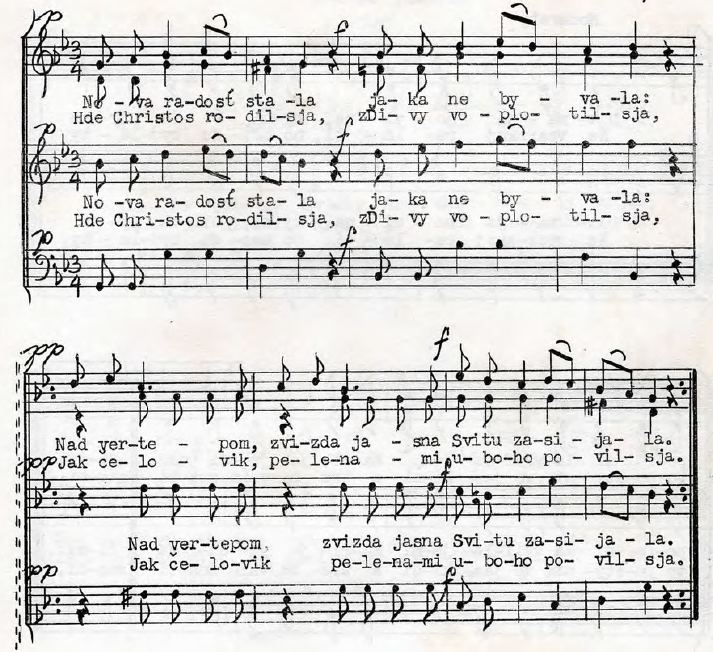 No - va ra-dosť sta -la ja- ka ne by - va -la:
Hde Christos ro- dil-sja, zDi- vy vo - plo- til- sja,
No -va ra- dosť sta- la ja- ka ne by - va -la:
Hde Chri-stos ro-dil- sja, zDi- vy vo - plo- til- sja,
Nad ver-te - pom, zvi-zda ja - sna Svitu za-si- ja- la.
Jak če- lo - vik, pe- le-na - mi u- bo-ho po - vil- sja.
Nad ver-tepom, zvizda jasna Svi-tu za-si- ja - la.
Jak če- lo-vik pe-le-na-mi u- bo-ho po- vil- sja.